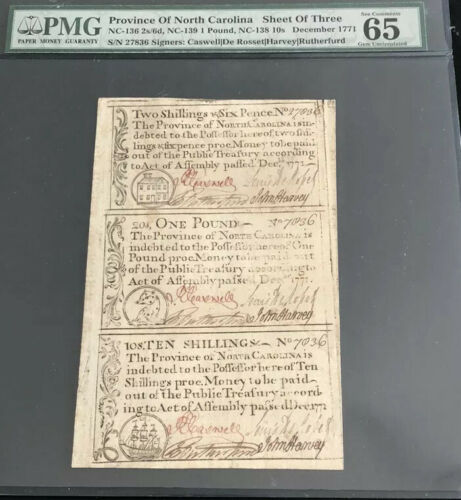 PMG
PAPER MONEY GUARANTY
Province Of North Carolina Sheet Of Three
NC-136 2s/6d, NC-139 1 Pound, NC-138 10s December 1771
S/N 27836 Signers: Caswell|De Rosset|Harvey|Rutherfurd
See Comments
65
Gem Uncirculated
Two Shillings & Six Pence. No 27836
The Province of North Carolina is in-
debted to the Possessor hereof two shil-
lings & sixpence proc. Money to be paid
out of the Public Treasury according
to Act of Assembly passed Decr. 1771
R Caswell
John Harvey
20s, ONE POUND No 7836
The Province of North Carolina is
indebted to the Possessor here of One
Pound proc. Money to be paid out
of the Public Treasury according to
Act of Assembly passed Decr. 1771
R Caswell
John Harvey
10s. TEN SHILLINGS No 7836
The Province of North Carolina is
indebted to the Possessor here of Ten
Shillings proc. Money to be paid
out of the Public Treasury accord-
ing to Act of Assembly passed Decr. 1771
R Caswell
John Harvey